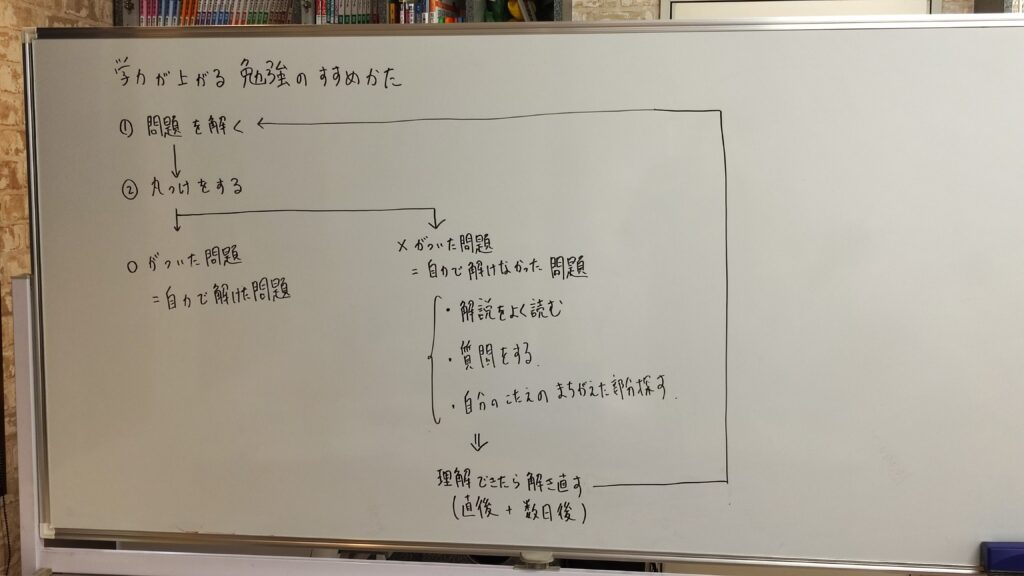 学力が上がる勉強のすすめかた
① 問題を解く
② 丸つけをする
○がついた問題
=自力で解けた問題
×がついた問題
=自力で解けなかった問題
・解説をよく読む
・質問をする.
・自分のこたえのまちがえた部分探す.
理解できたら解き直す
(直後+数日後)